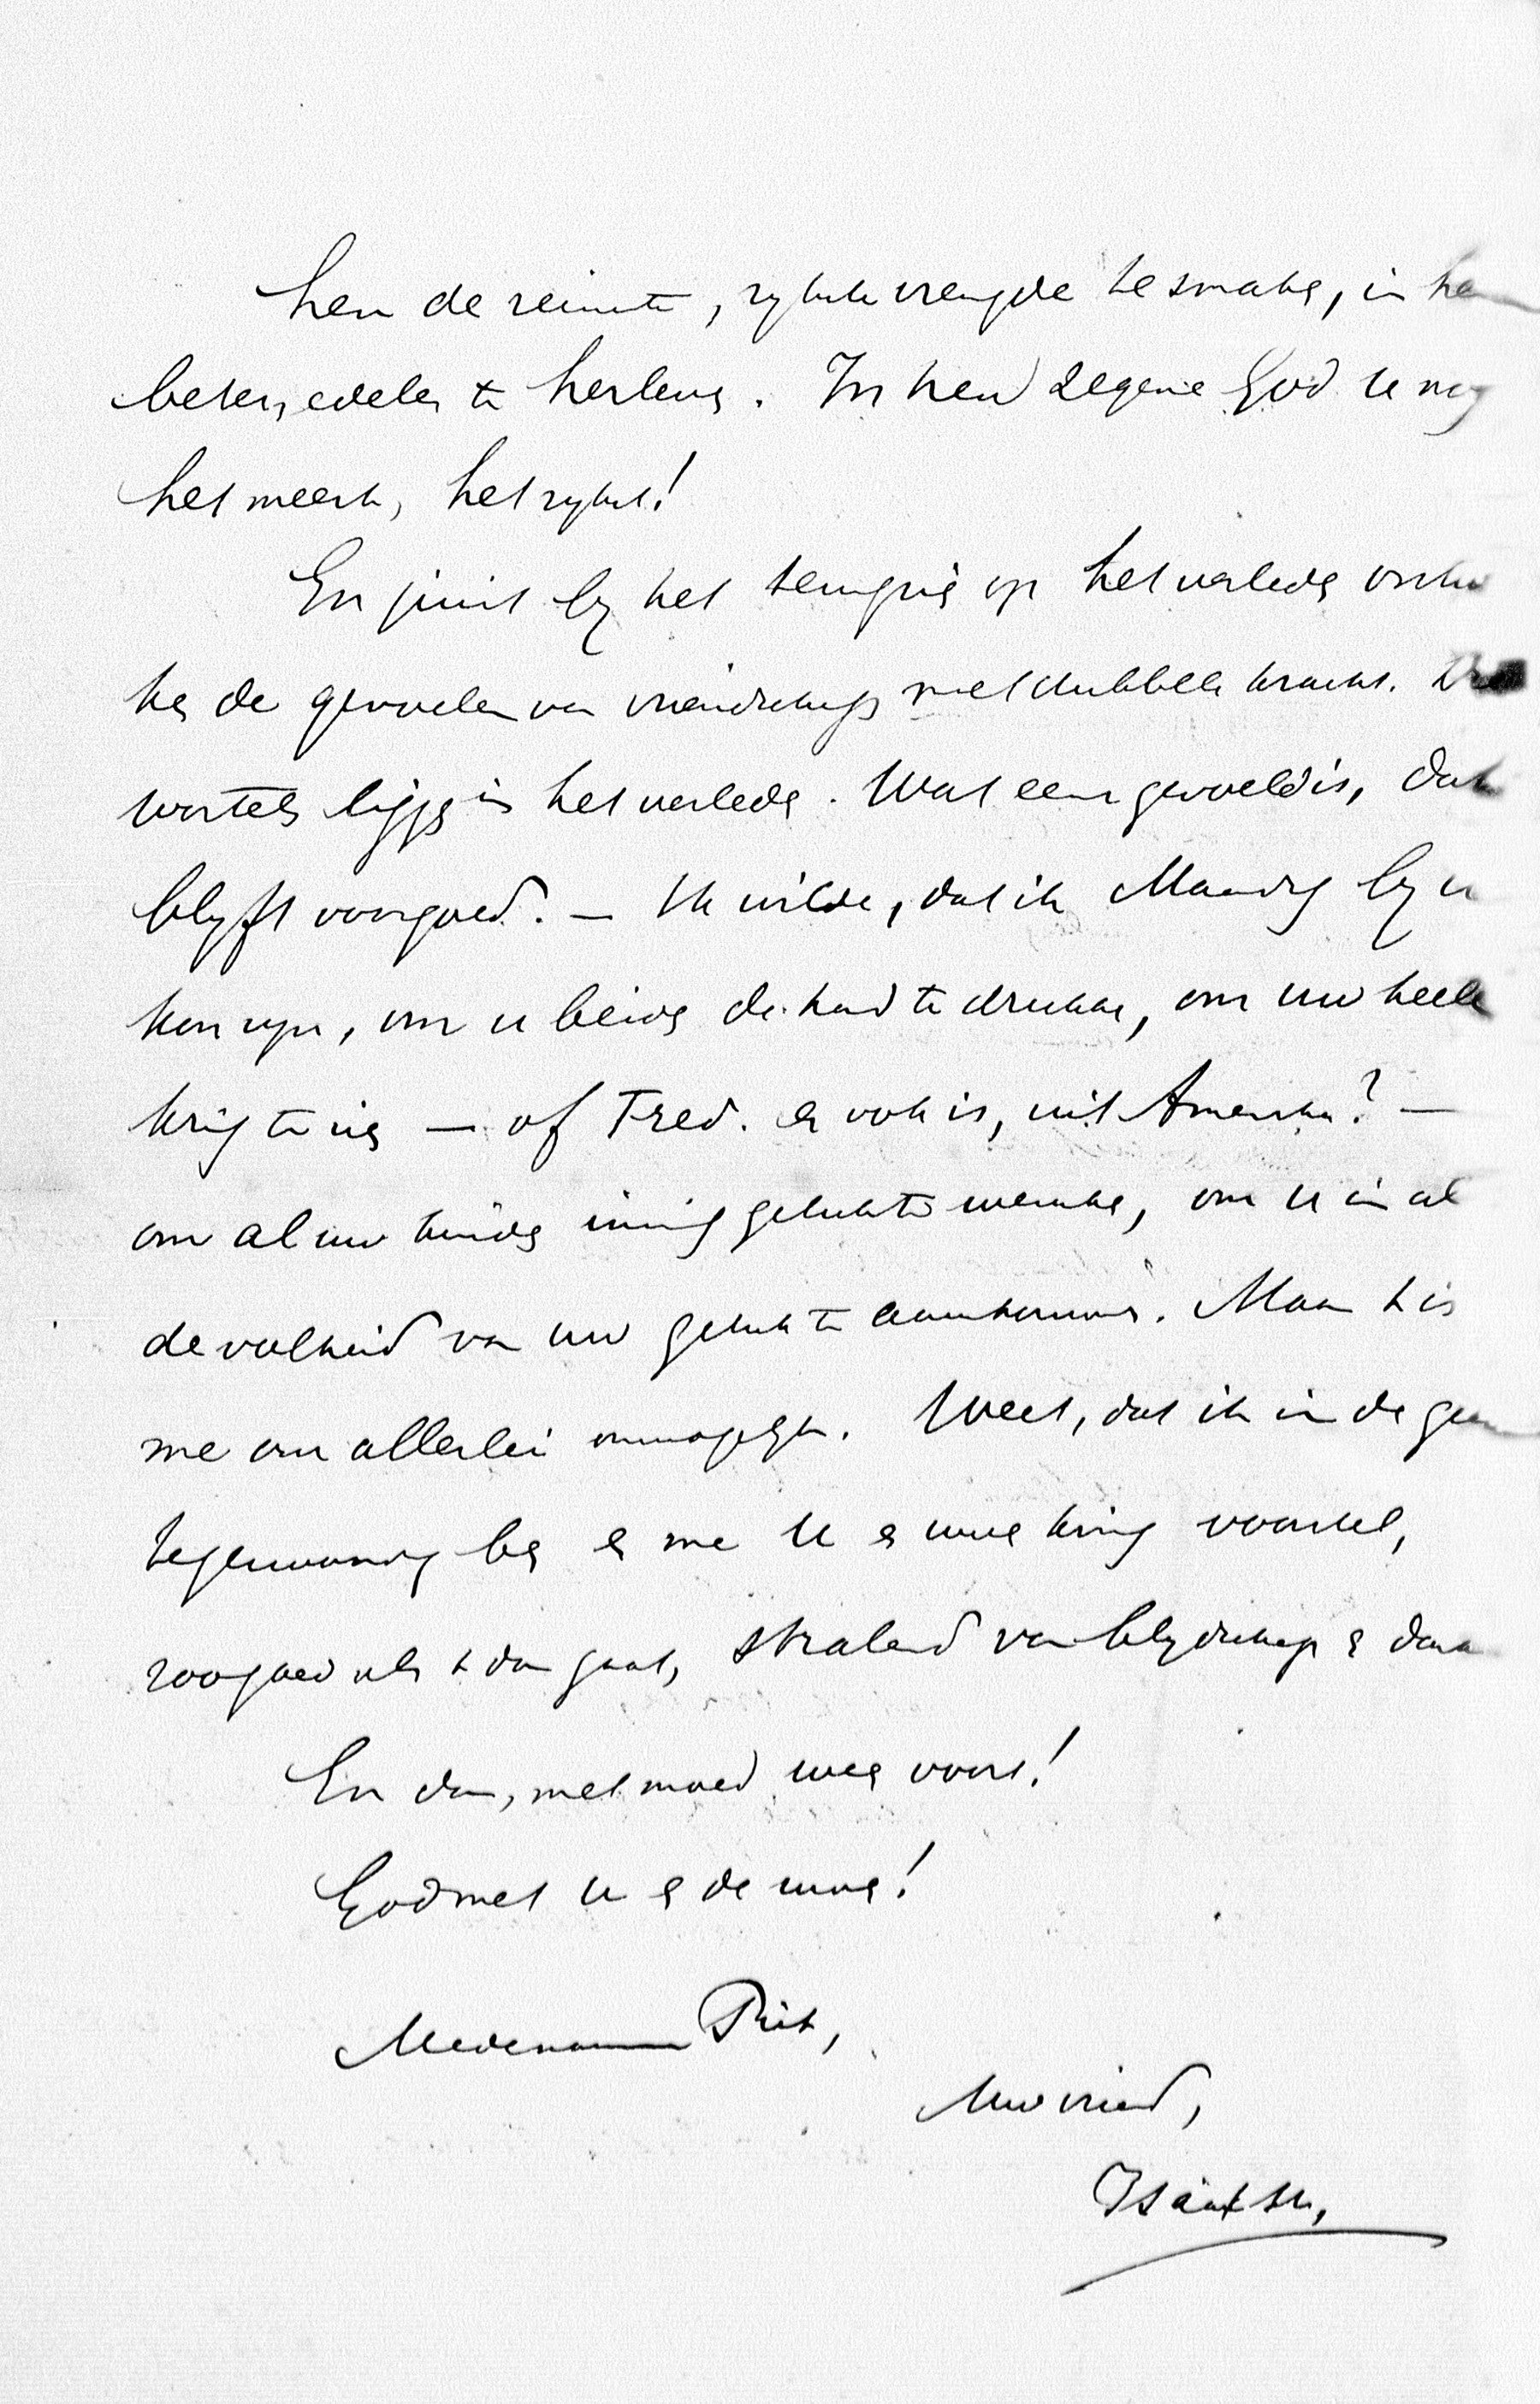 hen de reinste, rijkste vreugde te smaken, in hen
beter, edeler te herleven. In hen zegene God U nog
het meest, het rijkst!
En juist bij het terugzien op het verleden ontwa
ken de gevoelen van vriendschap met dubbele kracht.
wortels liggen in het verleden. Wat eens gevoeld is, dat
blijft voorgoed. — Ik wilde, dat ik Maandag bij u
kon zijn, om u beiden de hand te drukken, om uw heele
kring te zien — of Fred. er ook is, uit Amerika? —
om al uw kinderen innig geluk te wenschen, om U in al
de volheid van uw geluk te aanschouwen. Maar 't is
me om allerlei onmogelijk. Weet, dat ik in den geest
tegenwoordig ben en me U en uwen kring voorstel,
zoo goed als 't dan gaat, stralend van blijdschap en dank
En dan, met moed weer voort!
God met U en de uwen!
Medenamens Riek,
Uw vriend,